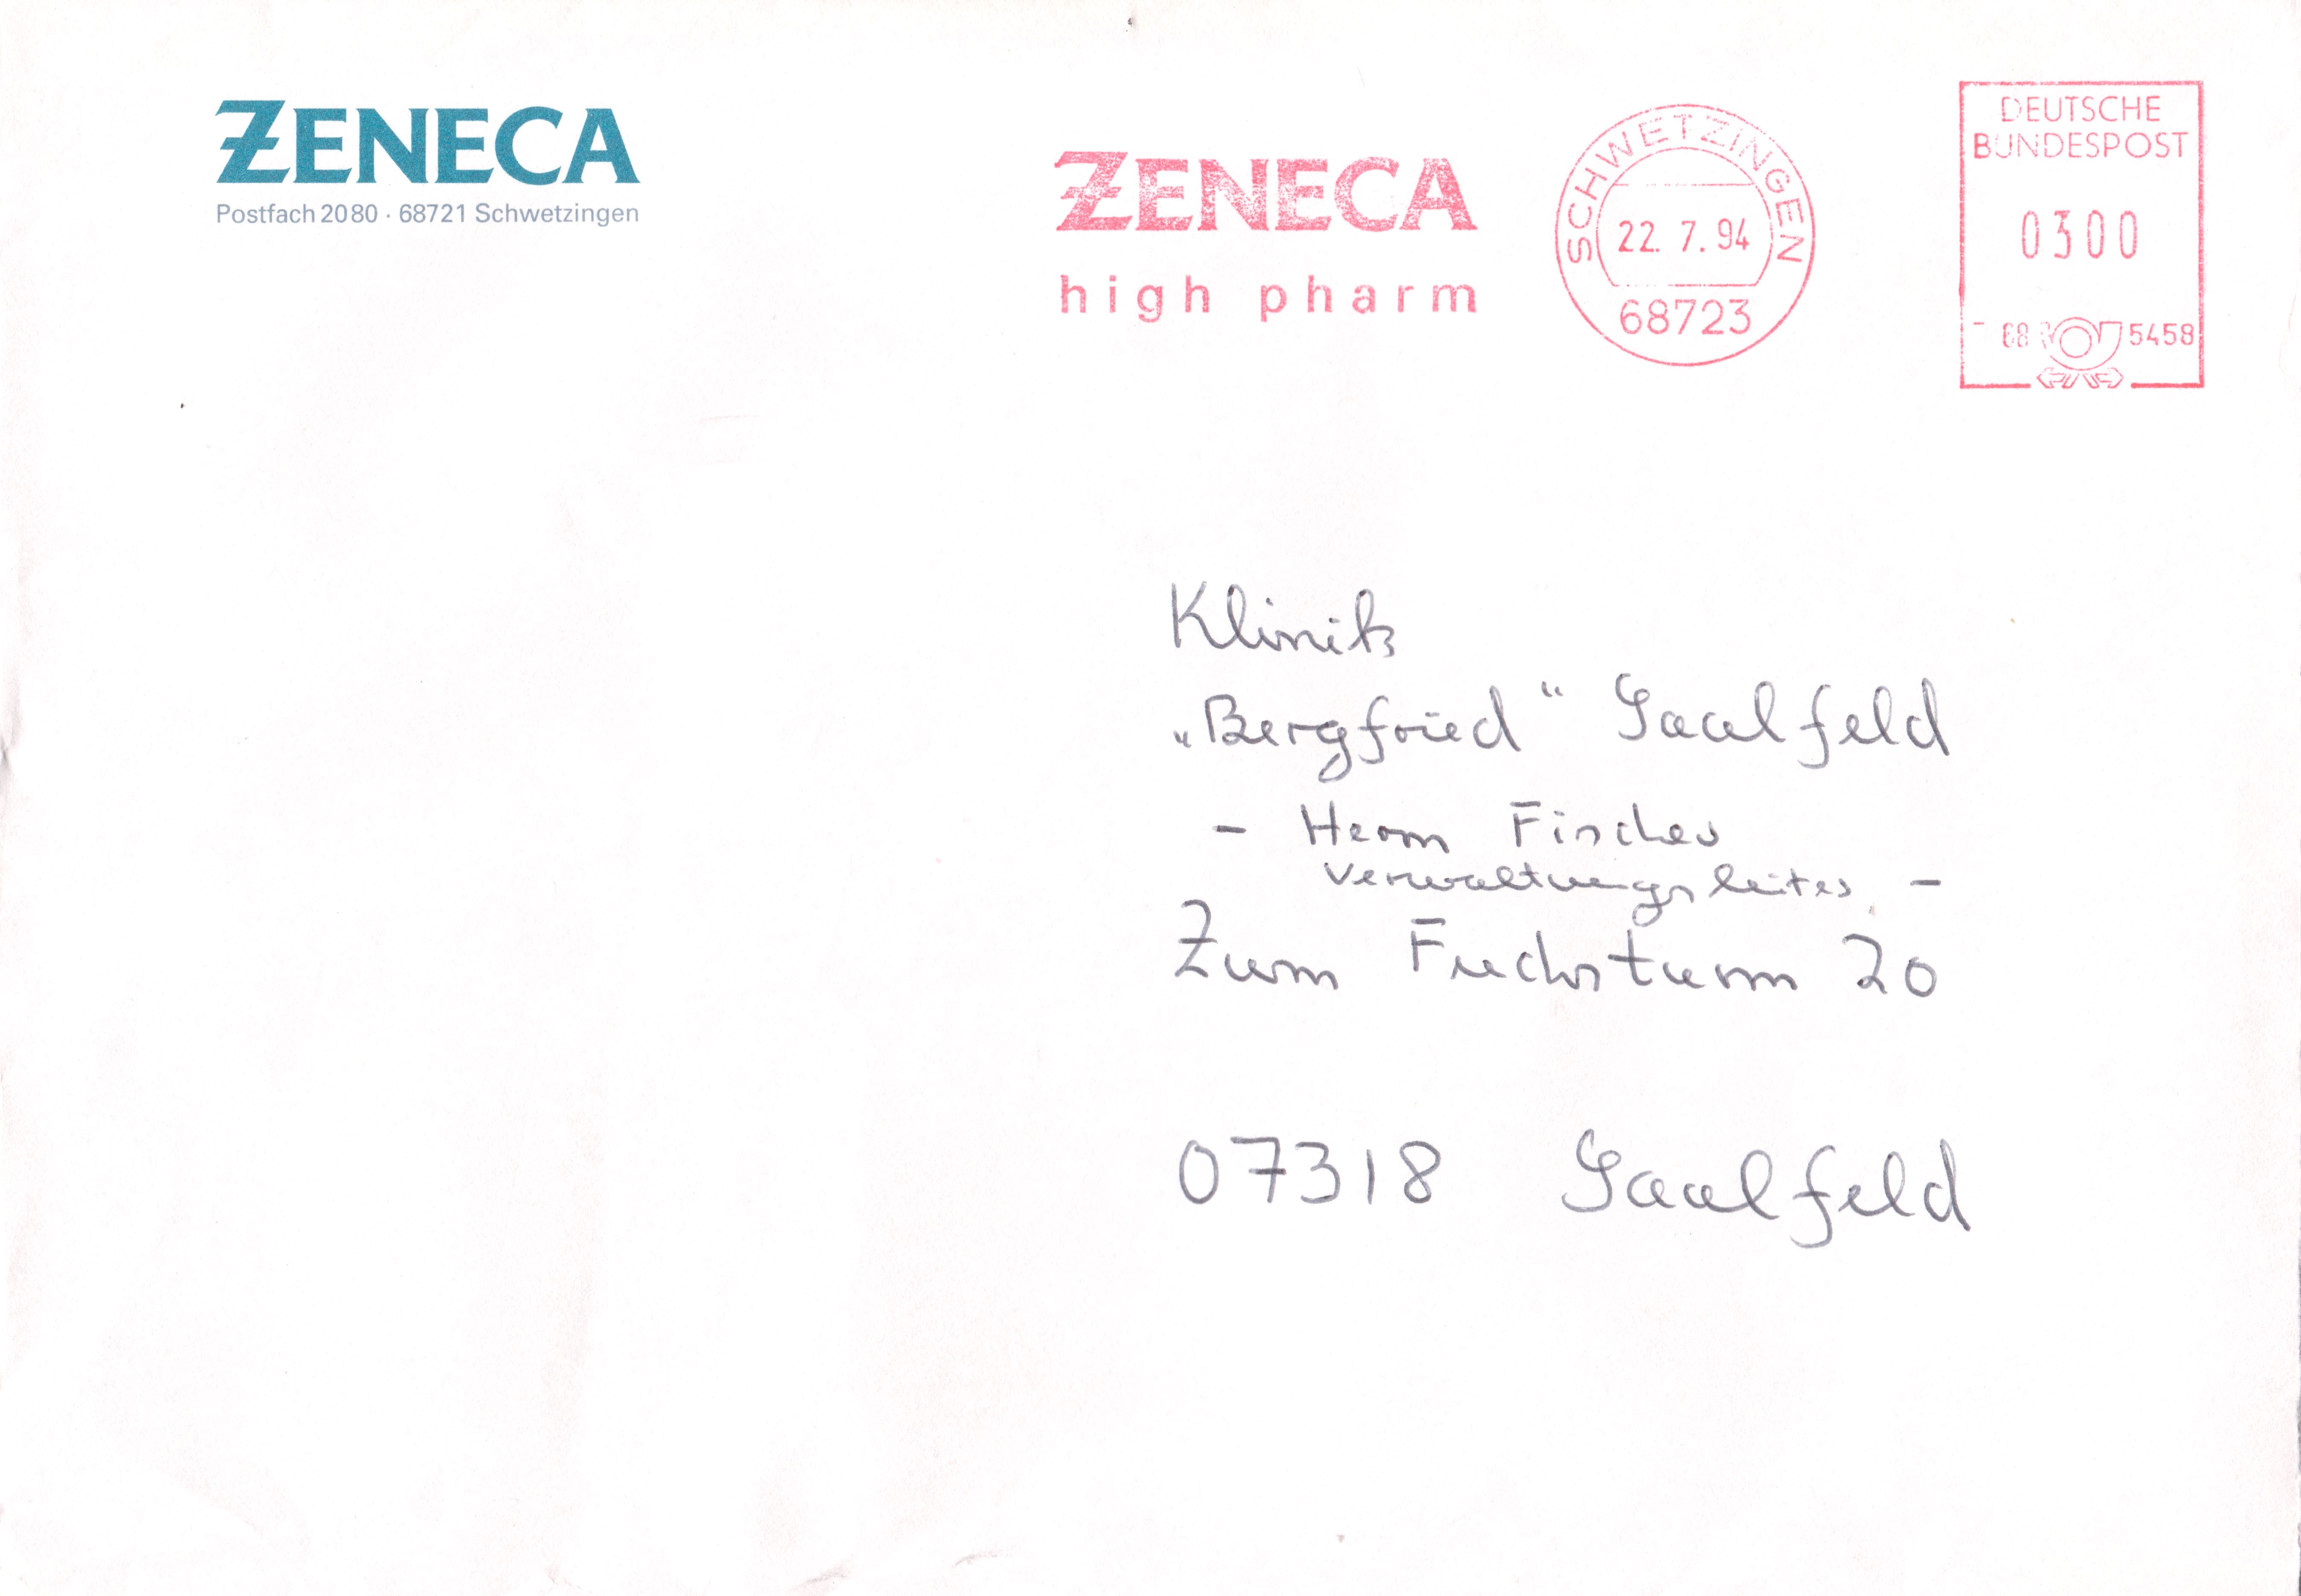 ZENECA
Postfach 2080 · 68721 Schwetzingen
ZENECA
high pharm
SCHWETZINGEN
22. 7. 94
68723
DEUTSCHE
BUNDESPOST
0300
5458
Klinik
„Bergfried“ Saalfeld
- Herrn Fischer
Verwaltungsleiter -
Zum Fuchsturm 20
07318 Saalfeld